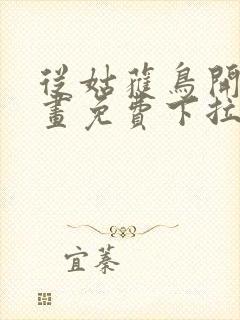 從姑獲鳥開
畫免費下拉
宜蓁